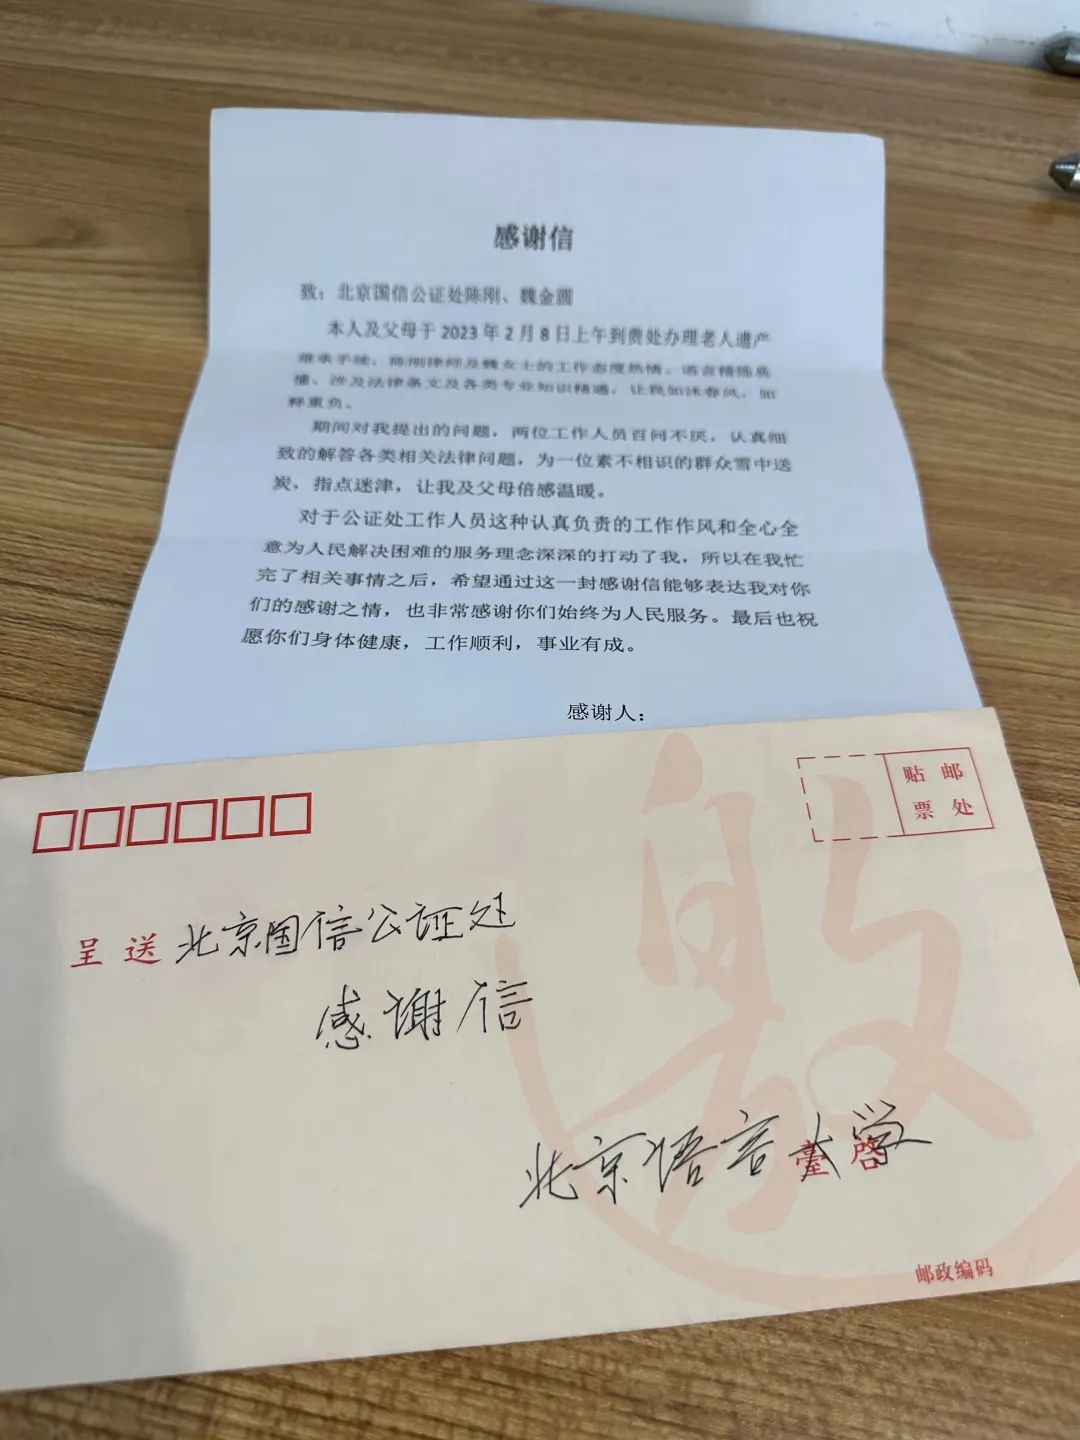 感谢信
致：北京国信公证处陈刚、魏金圆
本人及父母于2023年2月8日上午到贵处办理老人遗产
继承手续，陈刚律师及魏女士的工作态度热情、语言精炼易
懂、涉及法律条文及各类专业知识精通，让我如沐春风，如
释重负。
期间对我提出的问题，两位工作人员百问不厌，认真细
致的解答各类相关法律问题，为一位素不相识的群众雪中送
炭，指点迷津，让我及父母倍感温暖。
对于公证处工作人员这种认真负责的工作作风和全心全
意为人民解决困难的服务理念深深的打动了我，所以在我忙
完了相关事情之后，希望通过这一封感谢信能够表达我对你
们的感谢之情，也非常感谢你们始终为人民服务。最后也祝
愿你们身体健康，工作顺利，事业有成。
感谢人：
贴邮
票处
呈送 北京国信公证处
感谢信
北京语言大学
臺啓
邮政编码